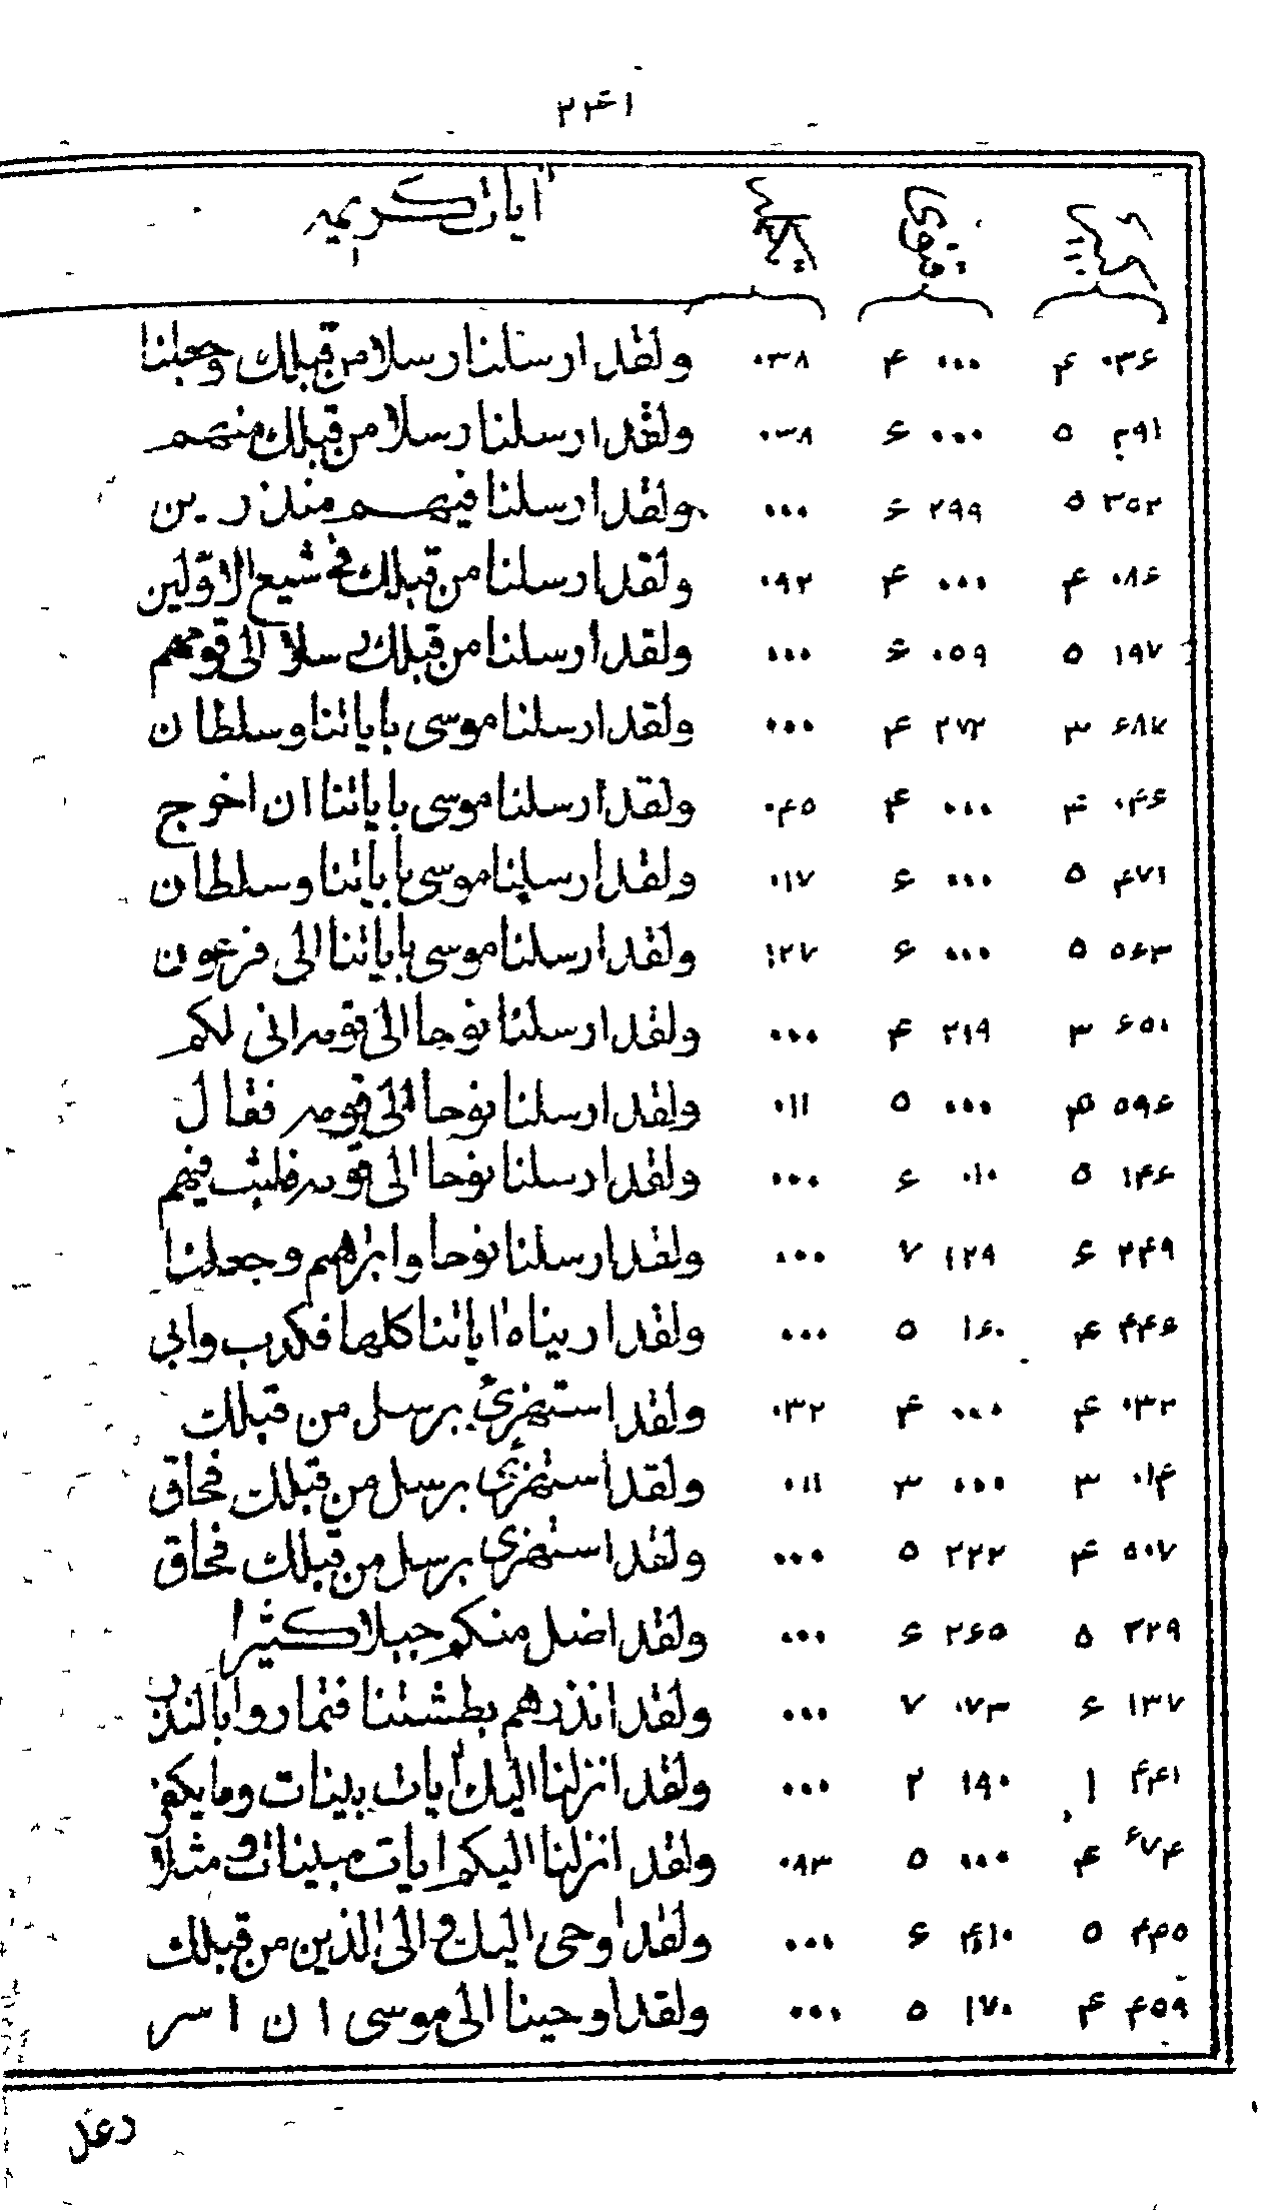 ۲۴۱
آيات كريمه
۰۳۶ ۴ ۰۰۰ ۴ ۰۳۸ ولقد ارسلنا رسلا من قبلك وجعلنا
۲۹۱ ۵ ۰۰۰ ۶ ۰۳۸ ولقد ارسلنا رسلا من قبلك منهم
۳۵۲ ۵ ۲۹۹ ۶ ۰۰۰ ولقد ارسلنا فيهم منذرين
۰۸۶ ۴ ۰۰۰ ۴ ۰۹۲ ولقد ارسلنا من قبلك فى شيع الاوّلين
۱۹۷ ۵ ۰۵۹ ۶ ۰۰۰ ولقد ارسلنا من قبلك رسلا الى قومهم
۶۸۷ ۳ ۲۷۲ ۴ ۰۰۰ ولقد ارسلنا موسى باياتنا وسلطان
۰۴۶ ۴ ۰۰۰ ۴ ۰۴۵ ولقد ارسلنا موسى باياتنا ان اخرج
۴۷۱ ۵ ۰۰۰ ۶ ۰۱۷ ولقد ارسلنا موسى باياتنا وسلطان
۵۶۳ ۵ ۰۰۰ ۶ ۱۲۷ ولقد ارسلنا موسى باياتنا الى فرعون
۶۵۰ ۳ ۲۱۹ ۴ ۰۰۰ ولقد ارسلنا نوحا الى قومه انى لكم
۵۹۶ ۴ ۰۰۰ ۵ ۰۱۱ ولقد ارسلنا نوحا الى قومه فقال
۱۴۶ ۵ ۰۱۰ ۶ ۰۰۰ ولقد ارسلنا نوحا الى قومه فلبث فيهم
۲۴۹ ۶ ۱۲۹ ۷ ۰۰۰ ولقد ارسلنا نوحا وابراهيم وجعلنا
۴۴۶ ۴ ۱۶۰ ۵ ۰۰۰ ولقد اريناه اياتنا كلها فكذب وابى
۰۳۲ ۴ ۰۰۰ ۴ ۰۳۲ ولقد استهزئ برسل من قبلك
۰۱۴ ۳ ۰۰۰ ۳ ۰۱۱ ولقد استهزئ برسل من قبلك فحاق
۵۰۷ ۴ ۲۲۲ ۵ ۰۰۰ ولقد استهزى برسل من قبلك فحاق
۳۲۹ ۵ ۲۶۵ ۶ ۰۰۰ ولقد اضل منكم جبلا كثيرا
۱۳۷ ۶ ۰۷۳ ۷ ۰۰۰ ولقد انذرهم بطشتنا فتماروا بالنذر
۴۴۱ ۱ ۱۹۰ ۲ ۰۰۰ ولقد انزلنا اليك آيات بينات وما يكفر
۶۷۴ ۴ ۰۰۰ ۵ ۰۸۳ ولقد انزلنا اليكم ايات مبينات و مثلا
۴۴۵ ۵ ۴۱۰ ۶ ۰۰۰ ولقد اوحى اليك و الى الذين من قبلك
۴۵۹ ۴ ۱۷۰ ۵ ۰۰۰ ولقد اوحينا الى موسى ان اسر